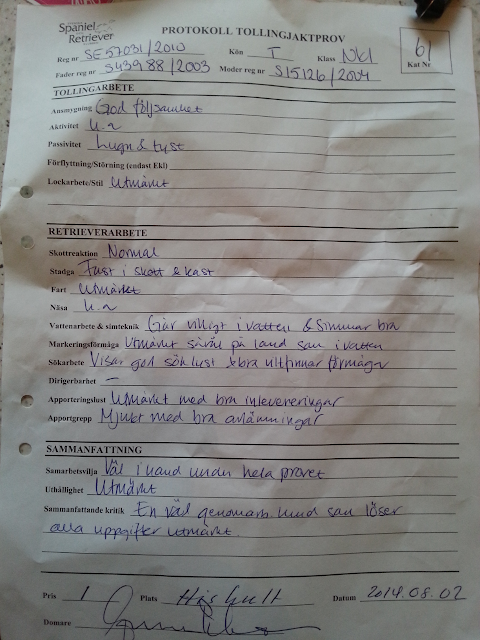 Spaniel
Retriever
PROTOKOLL TOLLINGJAKTPROV
Reg nr SE57031/2010 Kön T Klass Nkl
61
Kat Nr
Fader reg nr S43988/2003 Moder reg nr S15126/2004
TOLLINGARBETE
Ansmygning God följsamhet
Aktivitet u.a
Passivitet Lugn & tyst
Förflyttning/Störning (endast Ekl)
Lockarbete/Stil Utmärkt
RETRIEVERARBETE
Skottreaktion Normal
Stadga Fast i skott & kast
Fart Utmärkt
Näsa u.a
Vattenarbete & simteknik Går villigt i vatten & simmar bra
Markeringsförmåga Utmärkt såväl på land som i vatten
Sökarbete Visar god söklust & bra viltfinnarförmåga
Dirigerbarhet –
Apporteringslust Utmärkt med bra inlevereringar
Apportgrepp Mjukt med bra avlämningar
SAMMANFATTNING
Samarbetsvilja Väl i hand under hela provet
Uthållighet Utmärkt
Sammanfattande kritik En väl genomarb. hund som löser
alla uppgifter utmärkt.
Pris 1 Plats Datum 2014.08.02
Domare